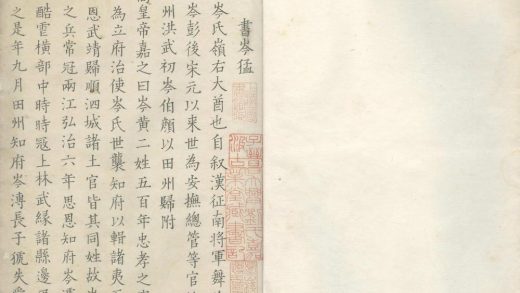 書岑猛
岑氏嶺右大酋也自叙漢征南將軍舞
岑彭後宋元以来世為安撫總管等官
州洪武初岑伯顔以田州歸附
高皇帝嘉之曰岑黄二姓五百年忠孝之
為立府治使岑氏世襲知府以輯諸夷
恩武靖歸順泗城諸土官皆其同姓故
之兵常冠兩江弘治六年思恩知府岑
酷雲橫部中時時冦上林武緣諸縣邊
之是年九月田州知府岑溥長子猇失